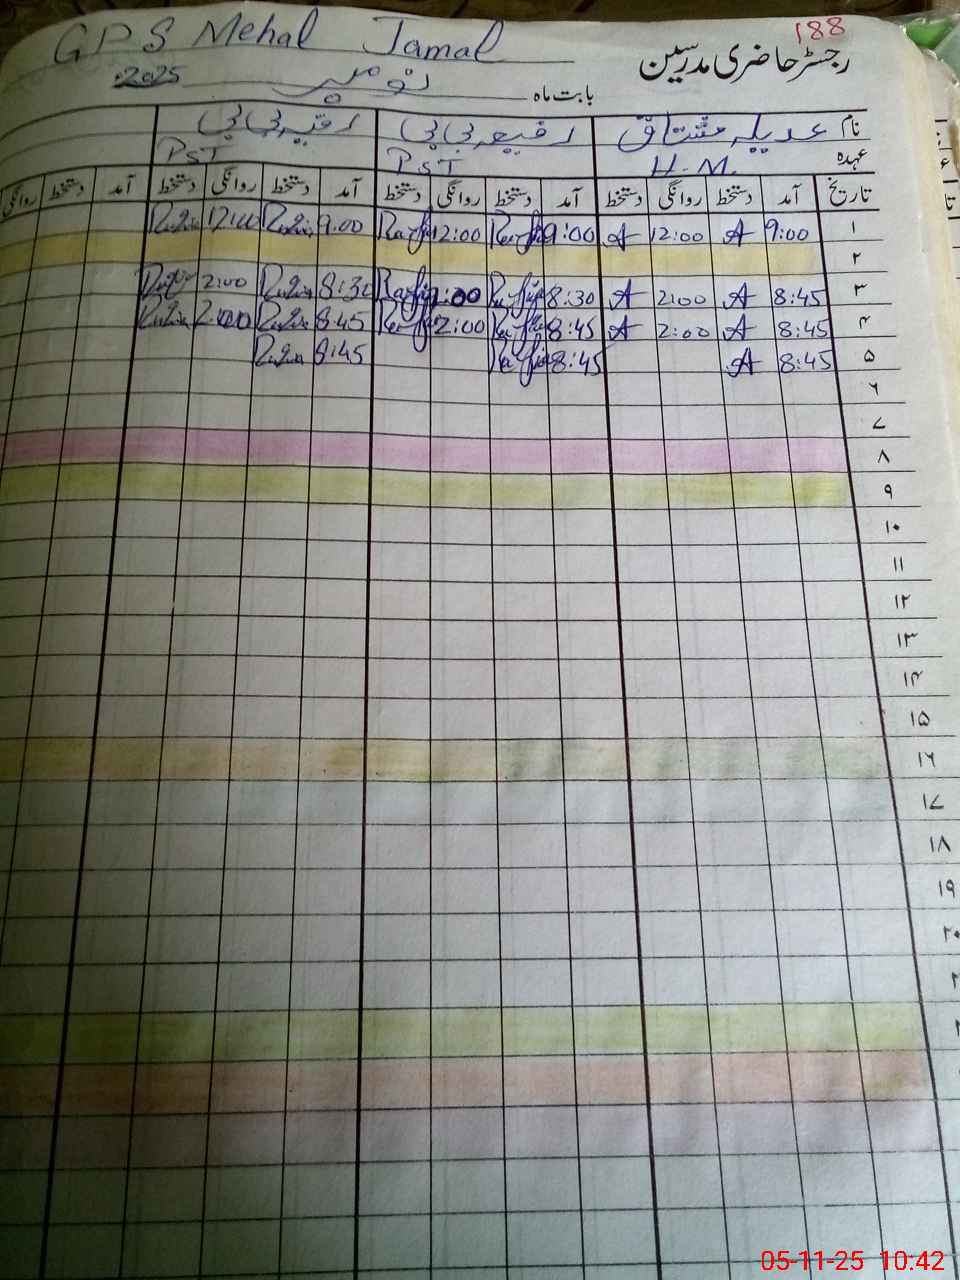 188
GPS Mehal Jamal
رجسٹر حاضری مدرسین
بابت ماہ نومبر 2025
نام عدیلہ مشتاق رفیعہ بی بی رقیہ بی بی
عہدہ H.M. PST PST
تاریخ آمد دستخط روانگی دستخط آمد دستخط روانگی دستخط آمد دستخط روانگی دستخط آمد دستخط روانگی
۱ 9:00 A 12:00 A 9:00 12:00 9:00 12:00
۲
۳ 8:45 A 2:00 A 8:30 2:00 8:30 2:00
۴ 8:45 A 2:00 A 8:45 2:00 8:45 2:00
۵ 8:45 A 8:45 8:45
۶
۷
۸
۹
۱۰
۱۱
۱۲
۱۳
۱۴
۱۵
۱۶
۱۷
۱۸
۱۹
۲۰
05-11-25 10:42